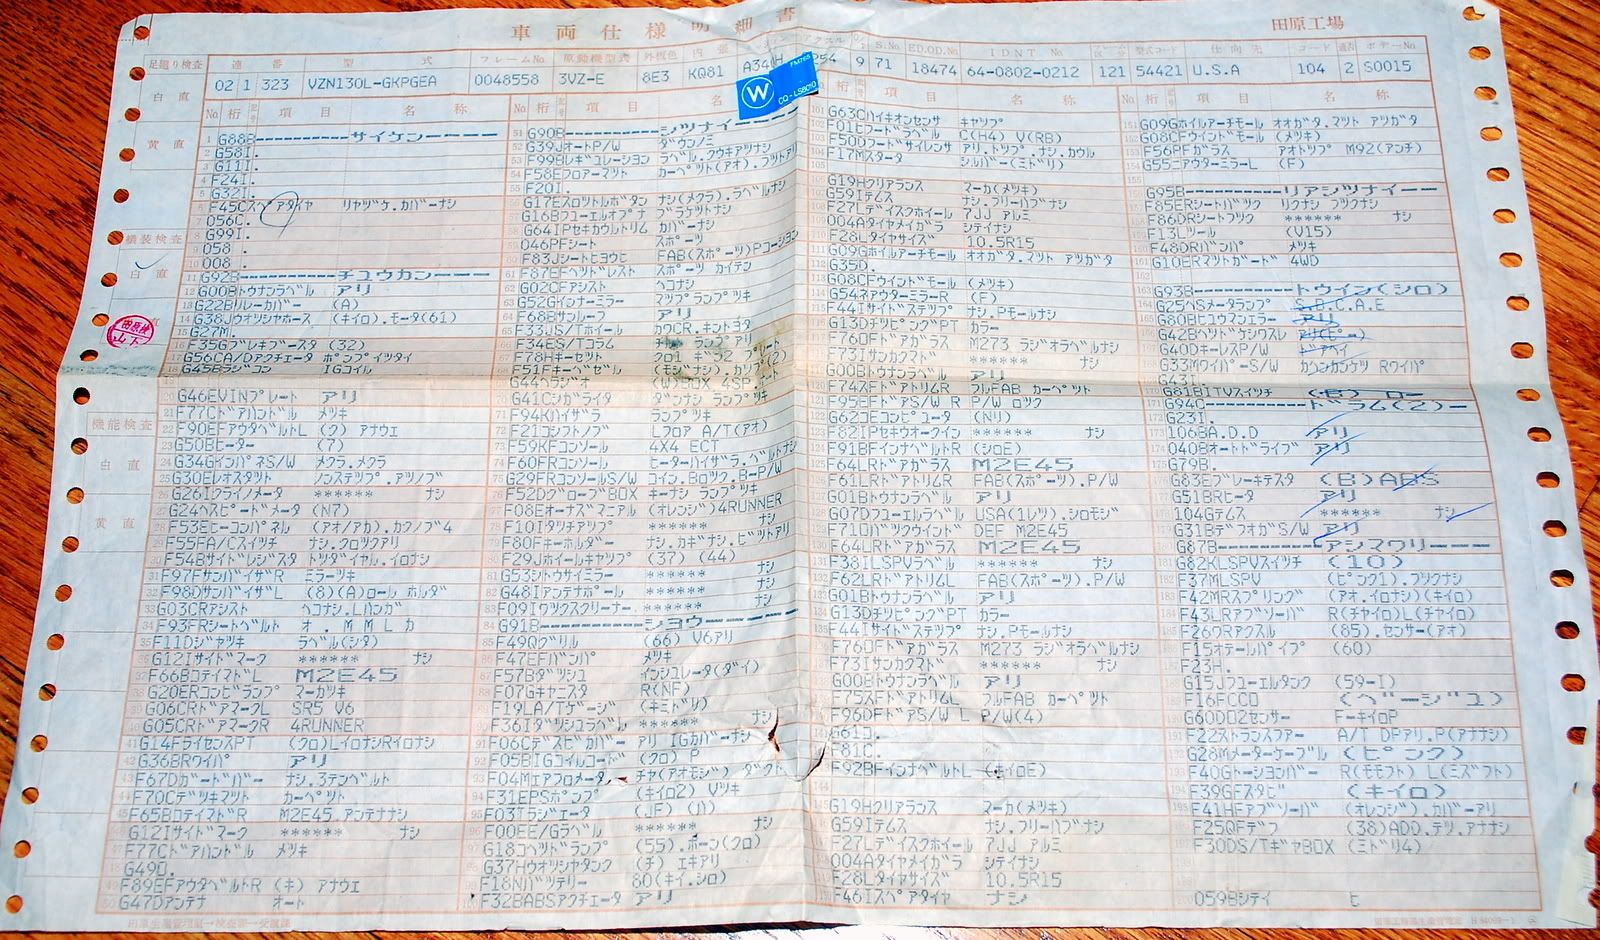 車両仕様明細書
田原工場
足廻り検査
連番
型式
フレームNo
原動機型式
外板色
内張
S.No
ED.OD.No
IDNT No
型式コード
仕向先
コード
ボデーNo
02 1 323 VZN130L-GKPGEA 0048558 3VZ-E 8E3 KQ81 9 71 18474 64-0802-0212 121 54421 U.S.A 104 2 S0015
W
CQ-LS8010
白直
黄直
艤装検査
白直
機能検査
白直
黄直
No 桁 項目 名称
1 G88B----------サイケン----
2 G58I.
3 G11D.
4 F24I.
5 G32I.
6 F45Cスペアタイヤ リヤツケ.カバーナシ
7 056C.
8 G99I.
9 058 .
10 008 .
11 G92B----------チユウカン----
12 G00Bトウナンラベル アリ
13 G22Bリレーカバー (A)
14 G38Jウオツシヤホース (キイロ).モータ(61)
15 G27M.
16 F35Gブレキブースタ (32)
17 G56CA/Dアクチエータ ポンプイツタイ
18 G45Bラジコン IGコイル
19
20 G46EVINプレート アリ
21 F77Cドアハンドル メツキ
22 F90EFアウタベルトL (ク) アナウエ
23 G50Bヒーター (7)
24 G34GインパネS/W メクラ.メクラ
25 G30Eレオスタツト ノンステツプ.アツノブ
26 G26Iクライノメータ ****** ナシ
27 G24Hスピードメータ (N7)
28 F53Eヒーコンパネル (アオ/アカ).カクノブ4
29 F55FA/Cスイツチ ナシ.クロツクアリ
30 F54Bサイドレジスタ トツダイヤル.イロナシ
31 F97FサンバイザR ミラーツキ
32 F98DサンバイザL (8)(A)ロールホルダ
33 G03CRアシスト ヘコナシ.Lハンガ
34 F93FRシートベルト オ.MMLカ
35 F11Dジヤツキ ラベル(シタ)
36 G12Iサイドマーク ****** ナシ
37 F66BコテイマドL M2E45
38 G20ERコンビランプ マーカツキ
39 G06CRドアマークL SR5 V6
40 G05CRドアマークR 4RUNNER
41 G14FライセンスPT (クロ)LイロナシRイロナシ
42 G36BRワイパ アリ
43 F67Dガードバー ナシ.3テンベルト
44 F70Cデツキマツト カーペツト
45 F65BコテイマドR M2E45.アンテナナシ
46 G12Iサイドマーク ****** ナシ
47 F77Cドアハンドル メツキ
48 G49D.
49 F89EFアウタベルトR (キ) アナウエ
50 G47Dアンテナ オート
51 G90B----------シツナイ----
52 G39JオートP/W ダウンノミ
53 F99Bレギユレーシヨン ラベル.クウキアツナシ
54 F58Eフロアーマツト カーペツト(アオ).フツトアリ
55 F20I.
56 G17Eスロツトルボタン ナシ(メクラ).ラベルナシ
57 G16Bフユーエルオプナ ブラケツトナシ
58 G64IPセキカウルトリム カバーナシ
59 046PFシート スポーツ
60 F83Jシートヒヨウヒ FAB(スポーツ)Pコーシヨン
61 F87EFヘツドレスト スポーツ カイテン
62 G02CFアシスト ヘコナシ
63 G52Gインナーミラー マツプランプツキ
64 F68Bサンルーフ アリ
65 F33JS/Tホイール カワCR.キントヨタ
66 F34ES/Tコラム チルト ランプアリ
67 F78Hキーセツト クロ1 ギラ2 プレート
68 F51Fキーベゼル (モジナシ).カツプ(2)
69 G44ヘラジオ (W)BOX 4SP.
70 G41Cシガライタ ダンナシ ランプツキ
71 F94Kハイザラ ランプツキ
72 F21Cシフトノブ Lフロア A/T(アオ)
73 F59KFコンソール 4X4 ECT
74 F60FRコンソール ヒーターハイザラ.ベルトナシ
75 G29FRコンソールS/W コイン.Bロツク.B-P/W
76 F52DグローブBOX キーナシ ランプツキ
77 F08Eオーナスマニアル (オレンジ)4RUNNER
78 F10Iタツチアツプ ****** ナシ
79 F80Fキーホルダー ナシ.カギナシ.ビツトアリ
80 F29Jホイールキヤツプ (37) (44)
81 G53Iシトウサイミラー ****** ナシ
82 G48Iアンテナポール ****** ナシ
83 F09Iワツクスクリーナー ****** ナシ
84 G91B----------シヨウ----
85 F49Qグリル (66) V6アリ
86 F47EFバンパ メツキ
87 F57Bダツシユ インシユレータ(ダイ)
88 F07Gキヤニスタ R(NF)
89 F19LA/Tゲージ (キミドリ)
90 F36Iダツシユラベル ****** ナシ
91 F06Cデスビカバー アリ IGカバーナシ
92 F05BIGコイルコード (クロ) P
93 F04Mエアフロメータ チヤ(アオモジ) ダクト
94 F31EPSポンプ (キイロ2) Vツキ
95 F03Iラジエータ (JF) (ハ)
96 F00EE/Gラベル ****** ナシ
97 G18Cヘツドランプ (55).ホーン(クロ)
98 G37Hウオツシヤタンク (チ) エキアリ
99 F18Nバツテリー 80(キイ.シロ)
100 F32BABSアクチエータ アリ
101 G63Cハイキオンセンサ キヤツプ
102 F01Eフードラベル C(H4) V(RB)
103 F50Dフードサイレンサ アリ.トツプナシ.カウル
104 F17Mスタータ シルバー(ミドリ)
105
106 G19Hクリアランス マーカ(メツキ)
107 G59Iテムス ナシ.フリーハブナシ
108 F27Lデイスクホイール 7JJ アルミ
109 004Aタイヤメイガラ シテイナシ
110 F28Lタイヤサイズ 10.5R15
111 G09Gホイルアーチモール オオガタ.マツト アツガタ
112 G35D.
113 G08CFウインドモール (メツキ)
114 G54FアウターミラーR (F)
115 F44Iサイドステツプ ナシ.Pモールナシ
116 G13DチツピングPT カラー
117 F76DFドアガラス M273 ラジオラベルナシ
118 F73Iサンカクマド ****** ナシ
119 G00Bトウナンラベル アリ
120 F74JFドアトリムR フルFAB カーペツト
121 F95EFドアS/W R P/W ロツク
122 G62Eコンピユータ (Nリ)
123 F82IPセキウオークイン ****** ナシ
124 F91BFインナベルトR (シロE)
125 F64LRドアガラス M2E45
126 F61LRドアトリムR FAB(スポーツ).P/W
127 G01Bトウナンラベル アリ
128 G07Dフユーエルラベル USA(1レツ).シロモジ
129 F71Dバツクウインド DEF M2E45
130 F64LRドアガラス M2E45
131 F38ILSPVラベル ****** ナシ
132 F62LRドアトリムL FAB(スポーツ).P/W
133 G01Bトウナンラベル アリ
134 G13DチツピングPT カラー
135 F44Iサイドステツプ ナシ.Pモールナシ
136 F76DFドアガラス M273 ラジオラベルナシ
137 F73Iサンカクマド ****** ナシ
138 G00Bトウナンラベル アリ
139 F75JFドアトリムL フルFAB カーペツト
140 F96DFドアS/W L P/W(4)
141 G61コ.
142 F81C.
143 F92BFインナベルトL (キイロE)
144
145 G19Hクリアランス マーカ(メツキ)
146 G59Iテムス ナシ.フリーハブナシ
147 F27Lデイスクホイール 7JJ アルミ
148 004Aタイヤメイガラ シテイナシ
149 F28Lタイヤサイズ 10.5R15
150 F46Iスペアタイヤ ナシ
151 G09Gホイルアーチモール オオガタ.マツト アツガタ
152 G08CFウインドモール (メツキ)
153 F56PFガラス アオトツプ M92(アンチ)
154 G55CアウターミラーL (F)
155
156 G95B----------リアシツナイ--
157 F85ERシートバツク リクナシ フツクナシ
158 F86DRシートフツク ****** ナシ
159 F13Lツール (V15)
160 F48DRバンパ メツキ
161 G10ERマツトガード 4WD
162
163 G93B----------トウイン(シロ)
164 G25ヘSメータランプ S.D.C.A.E
165 G80Bヒユウマンエラー アリ
166 G42Bヘツドケシワスレ アリ(ピー)
167 G40DキーレスP/W ドアヘイ
168 G33MワイパーS/W カンケンカンケツ Rワイパ
169 G43I.
170 G81BITVスイツチ (B) ロー
171 G94C----------トラム(2)--
172 G23I.
173 106BA.D.D アリ
174 040Bオートドライブ アリ
175 G79B.
176 G83Eブレーキテスタ (B)ABS
177 G51BRヒータ アリ
178 104Gテムス ****** ナシ
179 G31BデフオガS/W アリ
180 G87B----------アシマワリ----
181 G82KLSPVスイツチ (10)
182 F37MLSPV (ピンク1).フツクナシ
183 F42MRスプリング (アオ.イロナシ)(キイロ)
184 F43LRアブソーバ R(チヤイロ)L(チヤイロ)
185 F26ORアクスル (85).センサー(アオ)
186 F15オテールパイプ (60)
187 F23H.
188 G15Jフユーエルタンク (59-I)
189 F16FCCO (ベージユ)
190 G60DO2センサー F-キイロP
191 F22Sトランスファー A/T DPアリ.P(アナナシ)
192 G28Mメーターケーブル (ピンク)
193 F40Gトーシヨンバー R(モモフト) L(ミズフト)
194 F39GFスタビ (キイロ)
195 F41HFアブソーバ (オレンジ).カバーアリ
196 F25QFデフ (38)ADD.テツ.アナナシ
197 F30DS/TギヤBOX (ミドリ4)
200 059Bシテイ ヒ